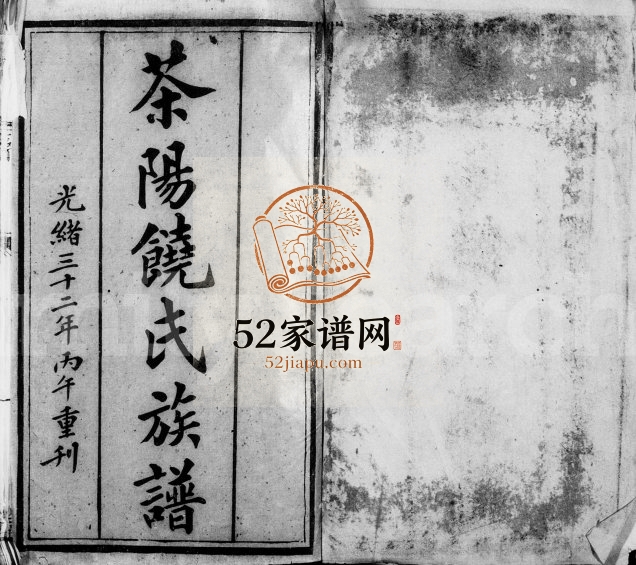 茶陽饒氏族譜
光緒三十二年丙午重刊
52家谱网
52jiapu.com